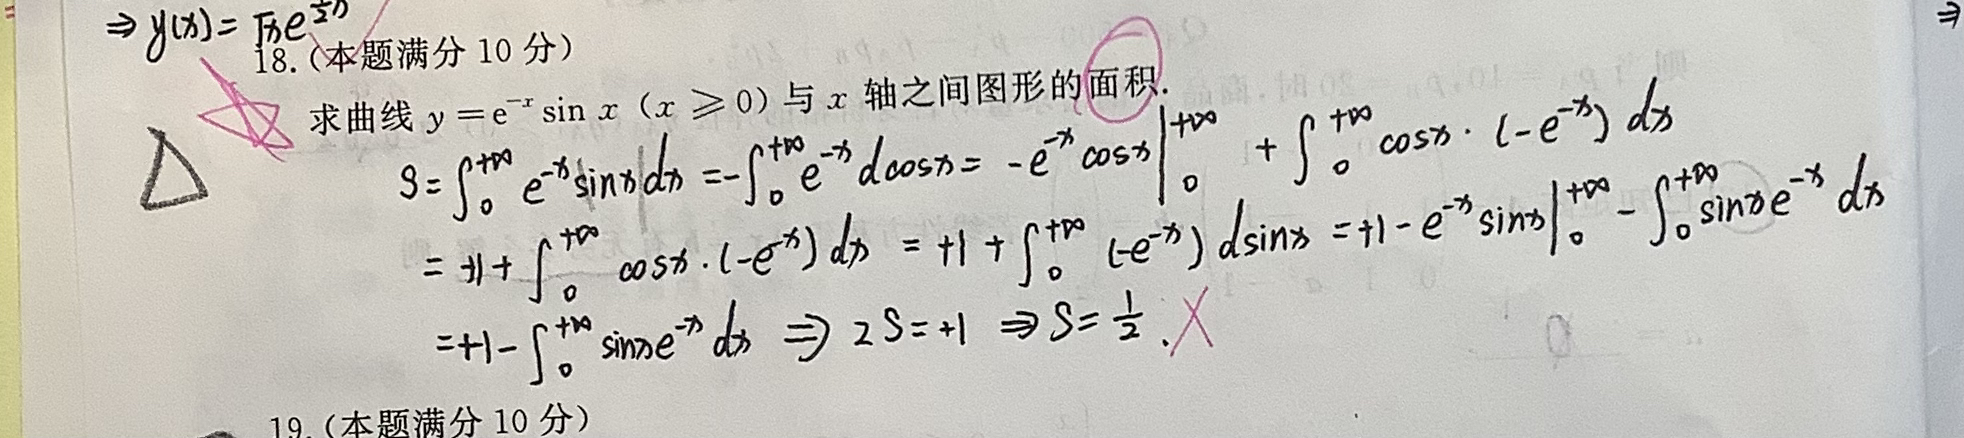 ⇒ y(x) = √x e^{½x²}
18.(本题满分 10 分)
求曲线 y = e^{-x} sin x (x ⩾ 0) 与 x 轴之间图形的面积.
S = ∫_0^{+∞} e^{-x} |sinx| dx = -∫_0^{+∞} e^{-x} dcosx = -e^{-x} cosx |_0^{+∞} + ∫_0^{+∞} cosx · (-e^{-x}) dx
= +1 + ∫_0^{+∞} cosx · (-e^{-x}) dx = +1 + ∫_0^{+∞} (-e^{-x}) dsinx = +1 - e^{-x} sinx |_0^{+∞} - ∫_0^{+∞} sinx e^{-x} dx
= +1 - ∫_0^{+∞} sinx e^{-x} dx ⇒ 2S = +1 ⇒ S = 1/2 .
19.(本题满分 10 分)